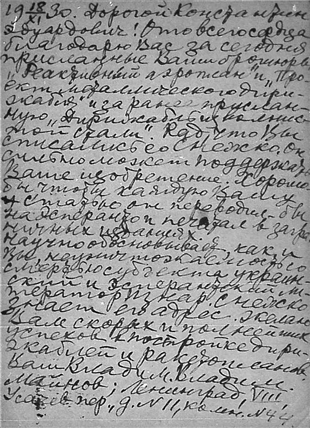 19 18/XI 30. Дорогой Константин
Эдуардович! Ото всего сердца
благодарю Вас за сегодня
присланные Ваши брошюры
"Реактивный аэроплан" и "Про-
ект металлического дири-
жабля" и за ранее прислан-
ную "Дирижабль из волнис-
той стали". Рад, что Вы
списались с Снежко, он
сильно может поддержать
Ваше изобретение. Хорошо
бы чтобы каждую Вашу
статью он переводил бы
на эсперанто и печатал в загра-
ничных изданиях
научно обосновывая, как и
Вы,
смертью субъекта украин-
ский и эсперантский
Снежко
знает его адрес. Желаю
Вам скорых и полнейших
успехов в постройке дири-
жаблей и ракетопланов.
Ваш Владим. Владим.
Майнов; Ленинград VIII
Усачев пер., д. № 11, комн. № 44